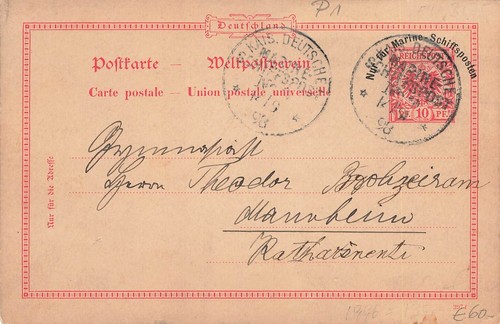 P1
Deutschland
Postkarte — Weltpostverein
Carte postale — Union postale universelle
Nur für Marine-Schiffsposten
REICHSPOST
10 PF.
KAIS. DEUTSCHE
MARINE
SCHIFFSPOST
98
KAIS. DEUTSCHE
MARINE
SCHIFFSPOST
98
Nur für die Adresse
Gymnasiast
Herrn Theodor
Mannheim
1946
£60-